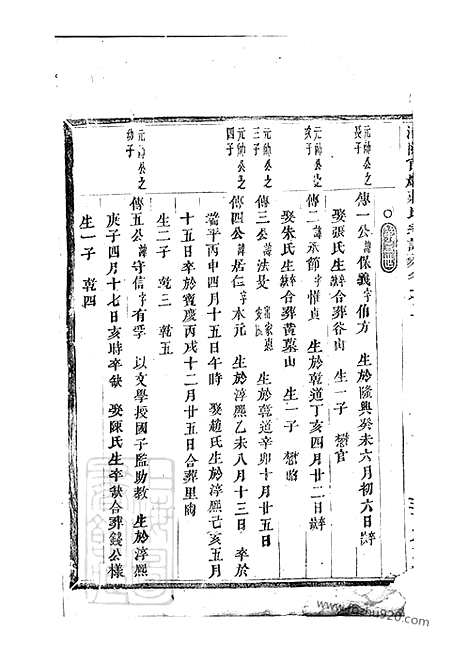 元帥公之長子
傳一公諱保義字伯方 生於隆興癸未六月初六日卒缺
娶張氏生卒缺合葬谷山 生一子 懋官
元帥公之次子
傳二諱承節字惟貞 生於乾道丁亥四月廿二日卒缺
娶朱氏生卒缺合葬黃墓山 生一子 懋昭
元帥公之三子
傳三公諱法是 生於乾道辛卯十月廿五日
元帥公之四子
傳四公諱居仁字本元 生於淳熙乙未八月十三日 卒於
端平丙申四月十五日午時 娶趙氏生於淳熙己亥五月
十五日卒於寶慶丙戌十二月廿五日合葬里陶
生二子 乾三 乾五
元帥公之幼子
傳五公諱守信字有孚 以文學授國子監助教 生於淳熙
庚子四月十七日亥時卒缺 娶陳氏生卒缺合葬錢公樣
生一子 乾四